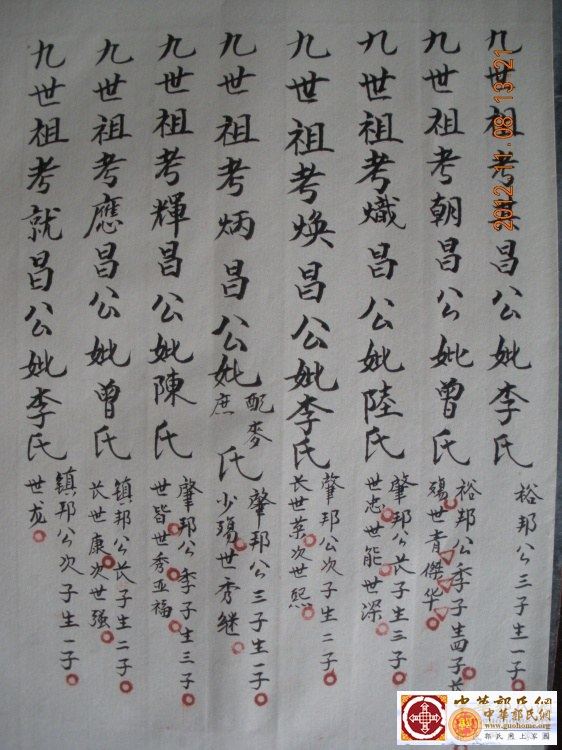 九世祖考昌公妣李氏
裕邦公三子生一子
九世祖考朝昌公妣曾氏
裕邦公季子生四子长
殤世青傑华
九世祖考熾昌公妣陸氏
肇邦公长子生三子
世忠世能世深
九世祖考焕昌公妣李氏
肇邦公次子生二子
长世荣次世熙
九世祖考炳昌公妣配麥氏
庶
肇邦公三子生一子
少殤世秀継
九世祖考輝昌公妣陳氏
肇邦公季子生三子
世皆世秀亚福
九世祖考應昌公妣曾氏
镇邦公长子生二子
长世康次世强
九世祖考就昌公妣李氏
镇邦公次子生一子
世龙
2012.11.08 13:21
中華郭氏網
中華郭氏網
www.guohome.org
郭氏网上家园